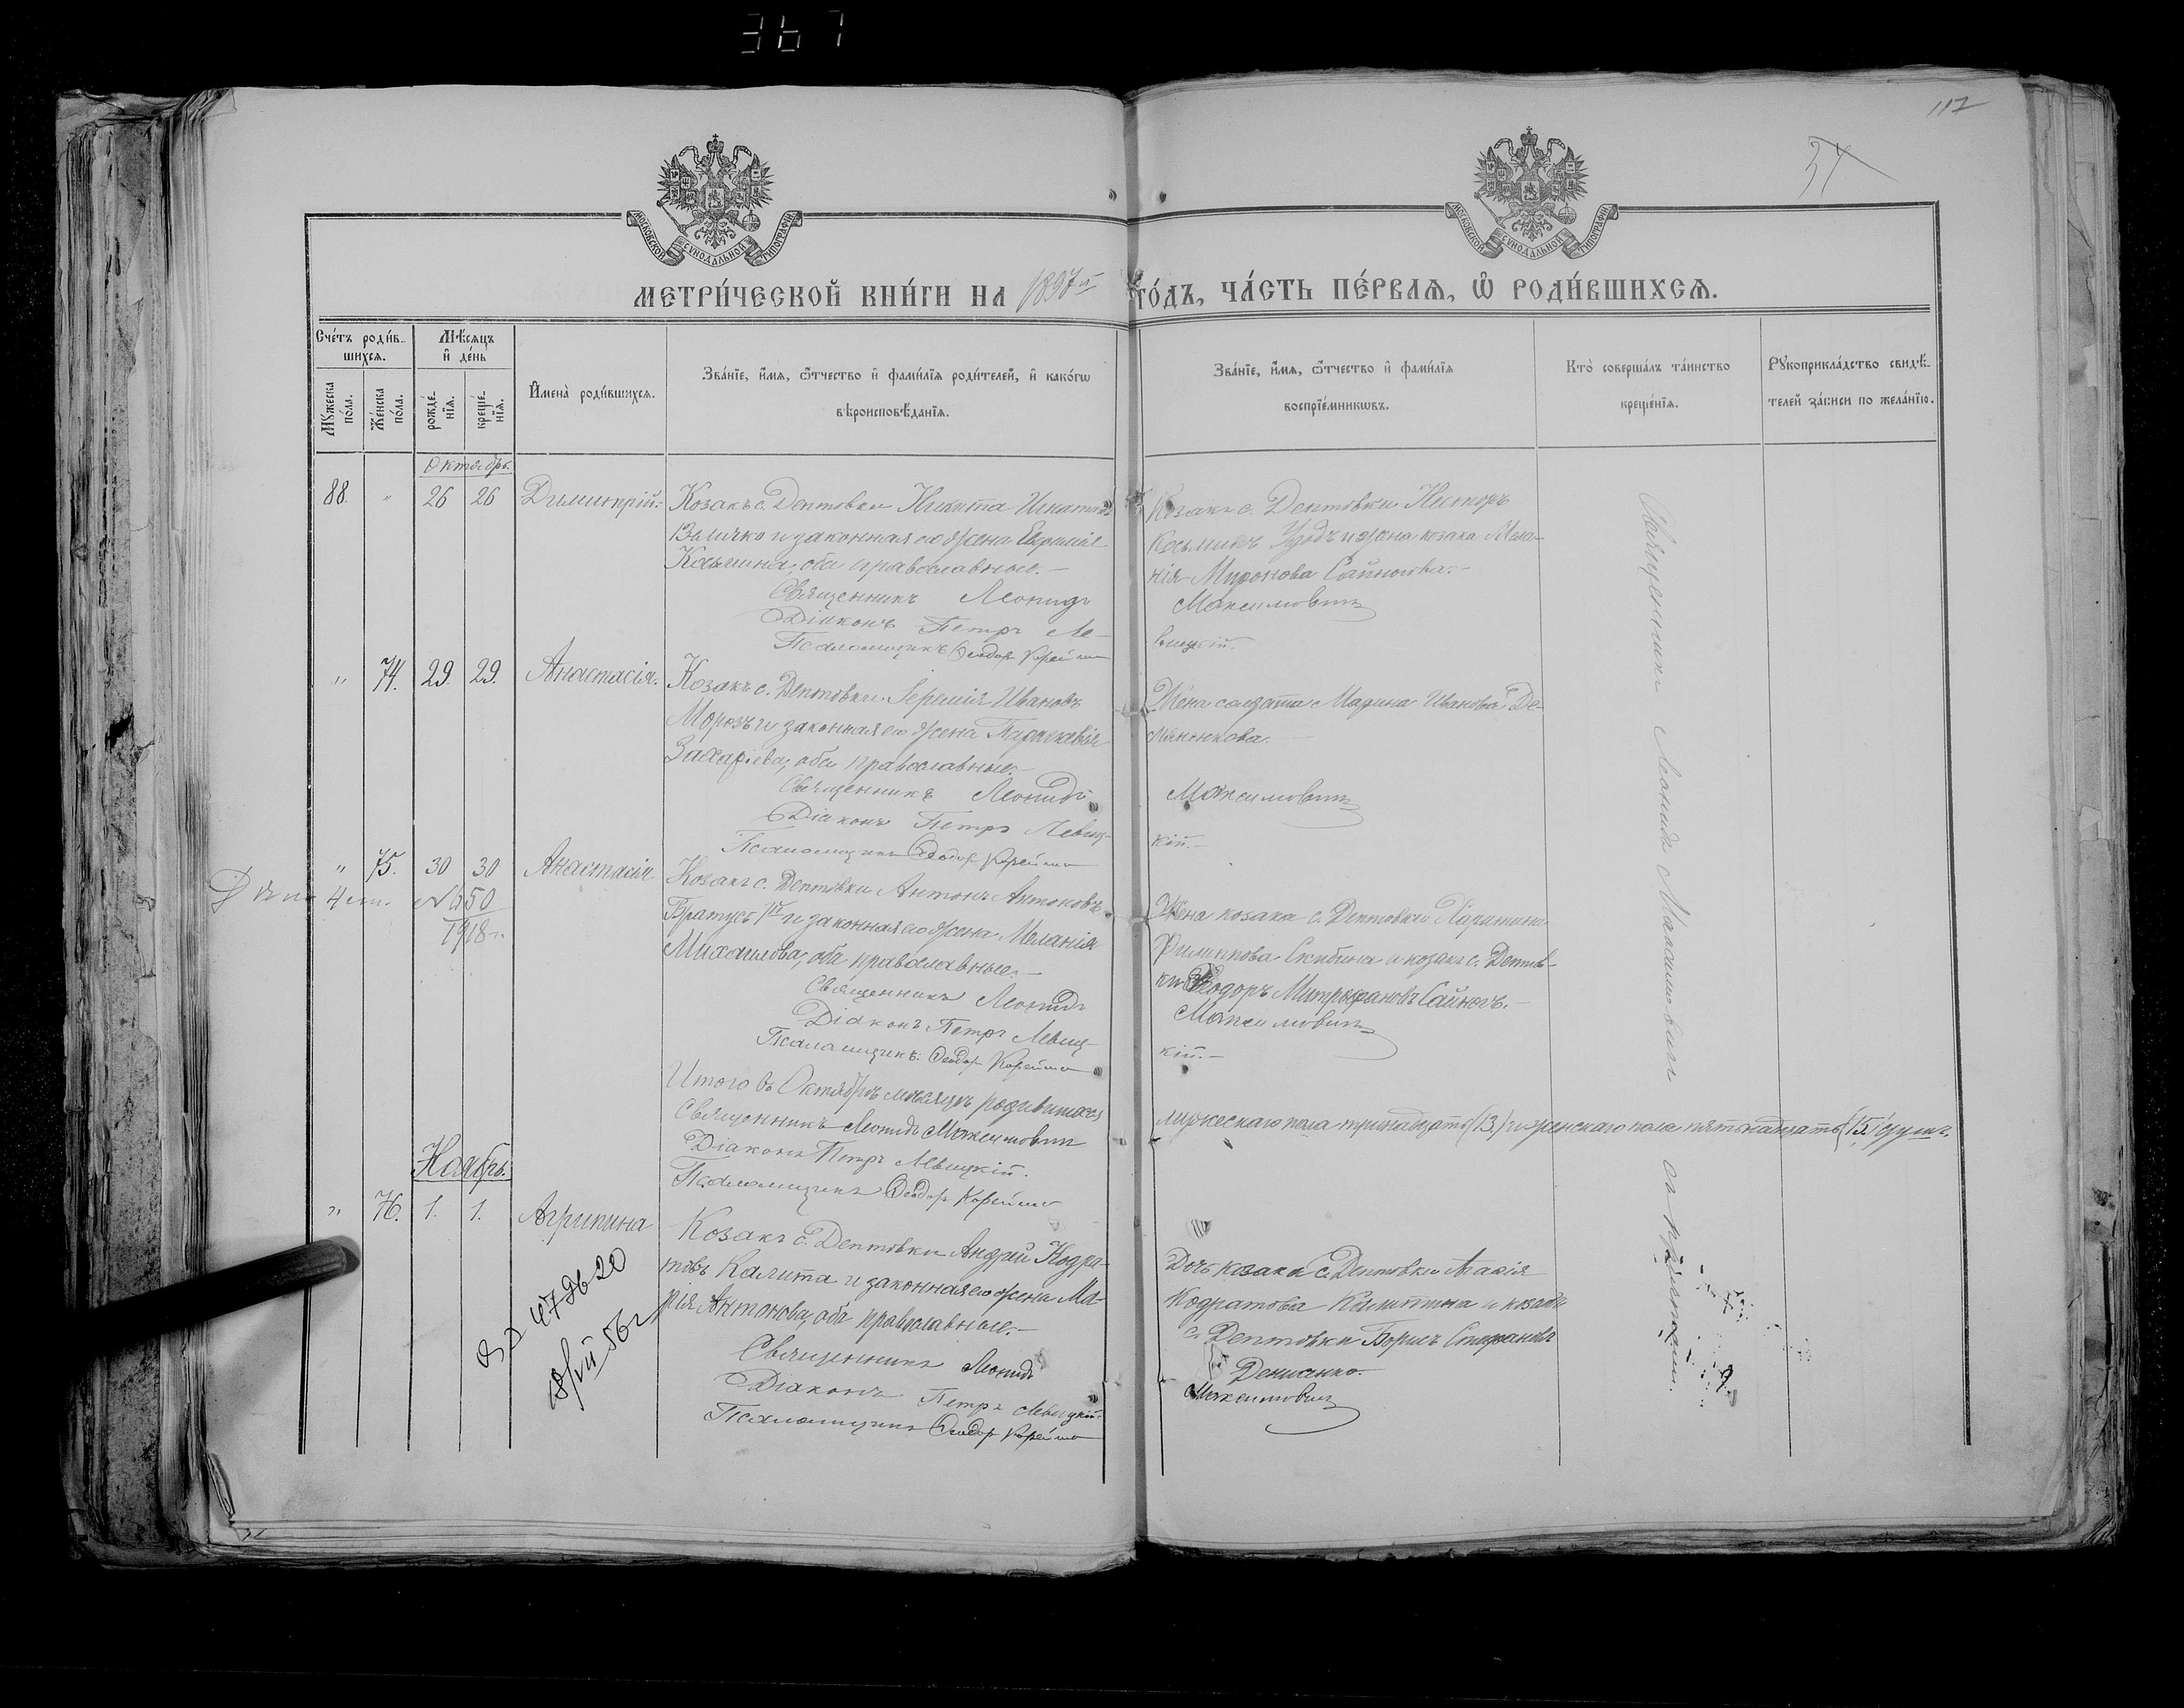 367
117
34
МОСКОВСКОЙ СѴНОДАЛЬНОЙ ТИПОГРАФІИ
МОСКОВСКОЙ СѴНОДАЛЬНОЙ ТИПОГРАФІИ
МЕТРИ́ЧЕСКОЙ КНИ́ГИ НА 1897й ГО́ДЪ, ЧА́СТЬ ПЕ́РВАЯ, Ѡ҆ РОДИ́ВШИХСЯ.
Сче́тъ роди́в-
шихся.
Мꙋ́жеска по́ла.
Же́нска по́ла.
Мѣ́сяцъ
и҆ де́нь
рожде́-
нїя.
креще́-
нїя.
И҆мена̀ роди́вшихся.
Зва́нїе, и҆́мя, ѻ҆́тчество и҆ фами́лїя роди́телей, и҆ како́гѡ
вѣроисповѣ́данїя.
Зва́нїе, и҆́мя, ѻ҆́тчество и҆ фами́лїя
воспрїе́мникѡвъ.
Кто̀ соверша́лъ та́инство
креще́нїя.
Рꙋкоприкла́дство свидѣ́-
телей за́писи по жела́нїю.
Октябрь.
88. " 26 26 Димитрій.
Козакъ с. Дептовки Никита Игнатовъ
Величко и законная его жена Евфимія
Косьмина, оба православные.-
Священникъ Леонидъ
Діаконъ Петръ Ле-
Псаломщикъ Ѳеодоръ Корейша
Козакъ с. Дептовки Несторъ
Косьминъ Удодъ и жена козака Мела-
нія Миронова Сайкова.-
Максимовичъ
вицкій.
" 74. 29. 29. Анастасія.
Козакъ с. Дептовки Іеремія Ивановъ
Морозъ и законная его жена Параскевія
Захаріева, оба православные.-
Священникъ Леонидъ
Діаконъ Петръ Левиц-
Псаломщикъ Ѳеодоръ Корейша
Жена солдата Марина Иванова Де-
Максимовичъ
кій.-
" 75. 30 30 Анастасія
4 N 650
1918 г.
Козакъ с. Дептовки Антонъ Антоновъ
Братусь 1й и законная его жена Меланія
Михаилова, оба православные.-
Священникъ Леонидъ
Діаконъ Петръ Левиц-
Псаломщикъ Ѳеодоръ Корейша
Жена козака с. Дептовки Харитина
Филиппова Скибина и козакъ с. Дептов-
ки Ѳеодоръ Митрофановъ Сайкогъ.-
Максимовичъ
кій.-
Итого въ Октябрѣ мѣсяцѣ родившихся
мужескаго пола тринадцать (13) и женскаго пола пятнадцать (15) душъ.
Священникъ Леонидъ Максимовичъ
Діаконъ Петръ Левицкій.
Псаломщикъ Ѳеодоръ Корейша
Ноябрь.
" 76. 1. 1. Агрипина
Козакъ с. Дептовки Андрей Кодра-
товъ Калита и законная его жена Ма-
рія Антонова, оба православные.-
Священникъ Леонидъ
Діаконъ Петръ Левицкій.
Псаломщикъ Ѳеодоръ Корейша
Дочь козака с. Дептовки Агафія
Кодратова Калитина и козакъ
с. Дептовки Борисъ Стефановъ
Денисенко.
Максимовичъ
Священникъ Леонидъ Максимовичъ съ причтомъ.